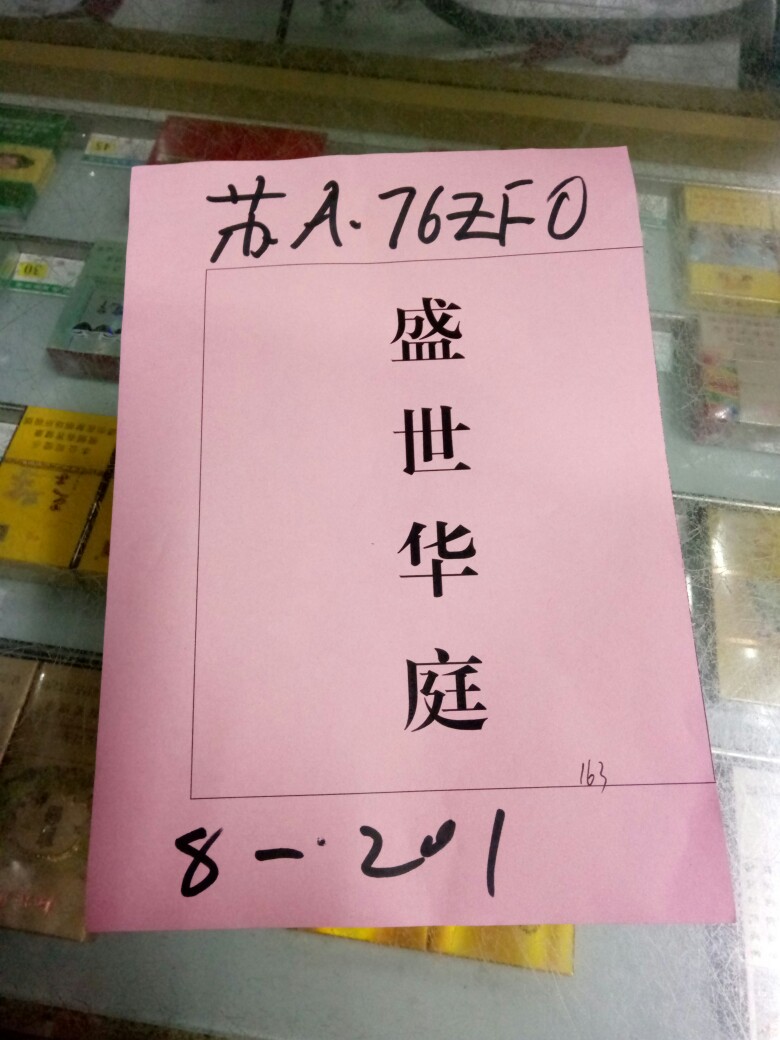 苏A·76ZF0
盛
世
华
庭
163
8-·201
45
30